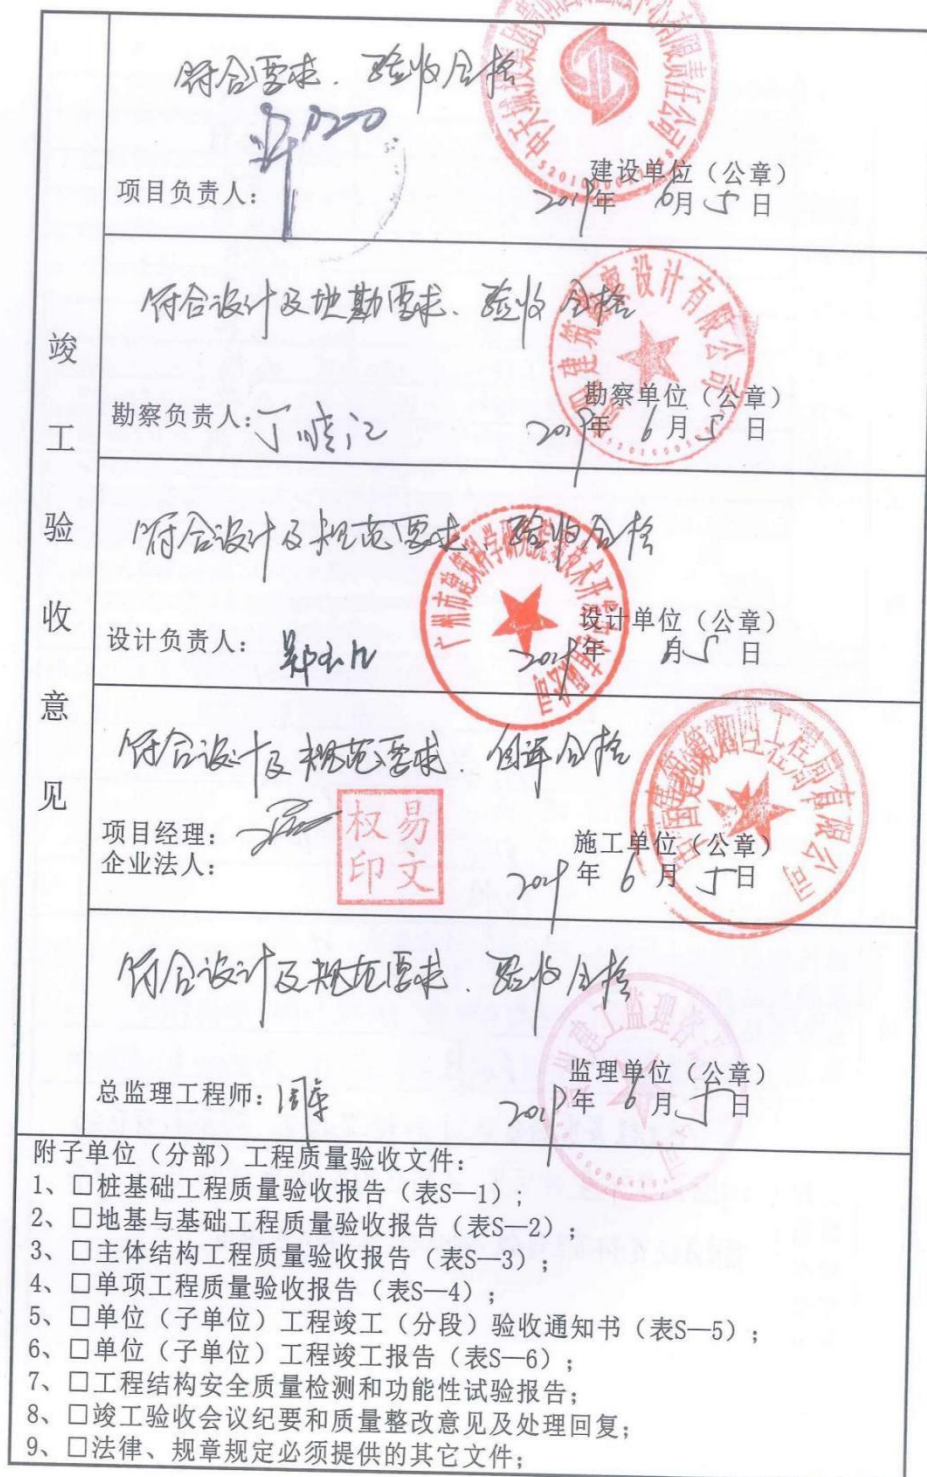 符合要求、验收合格
项目负责人:
建设单位（公章）
2019年 6月5日
竣工验收意见
符合设计及地勘要求、验收合格
勘察负责人:
勘察单位（公章）
2019年 6月5日
符合设计及规范要求、验收合格
广州市建筑科学研究院
设计负责人:
设计单位（公章）
2019年 6月5日
符合设计及规范要求、自评合格
项目经理:
企业法人:
易文权印
施工单位（公章）
2019年 6月5日
符合设计及规范要求、验收合格
总监理工程师:
监理单位（公章）
2019年 6月5日
附子单位（分部）工程质量验收文件:
1、□桩基础工程质量验收报告（表S—1）;
2、□地基与基础工程质量验收报告（表S—2）;
3、□主体结构工程质量验收报告（表S—3）;
4、□单项工程质量验收报告（表S—4）;
5、□单位（子单位）工程竣工（分段）验收通知书（表S—5）;
6、□单位（子单位）工程竣工报告（表S—6）;
7、□工程结构安全质量检测和功能性试验报告;
8、□竣工验收会议纪要和质量整改意见及处理回复;
9、□法律、规章规定必须提供的其它文件;